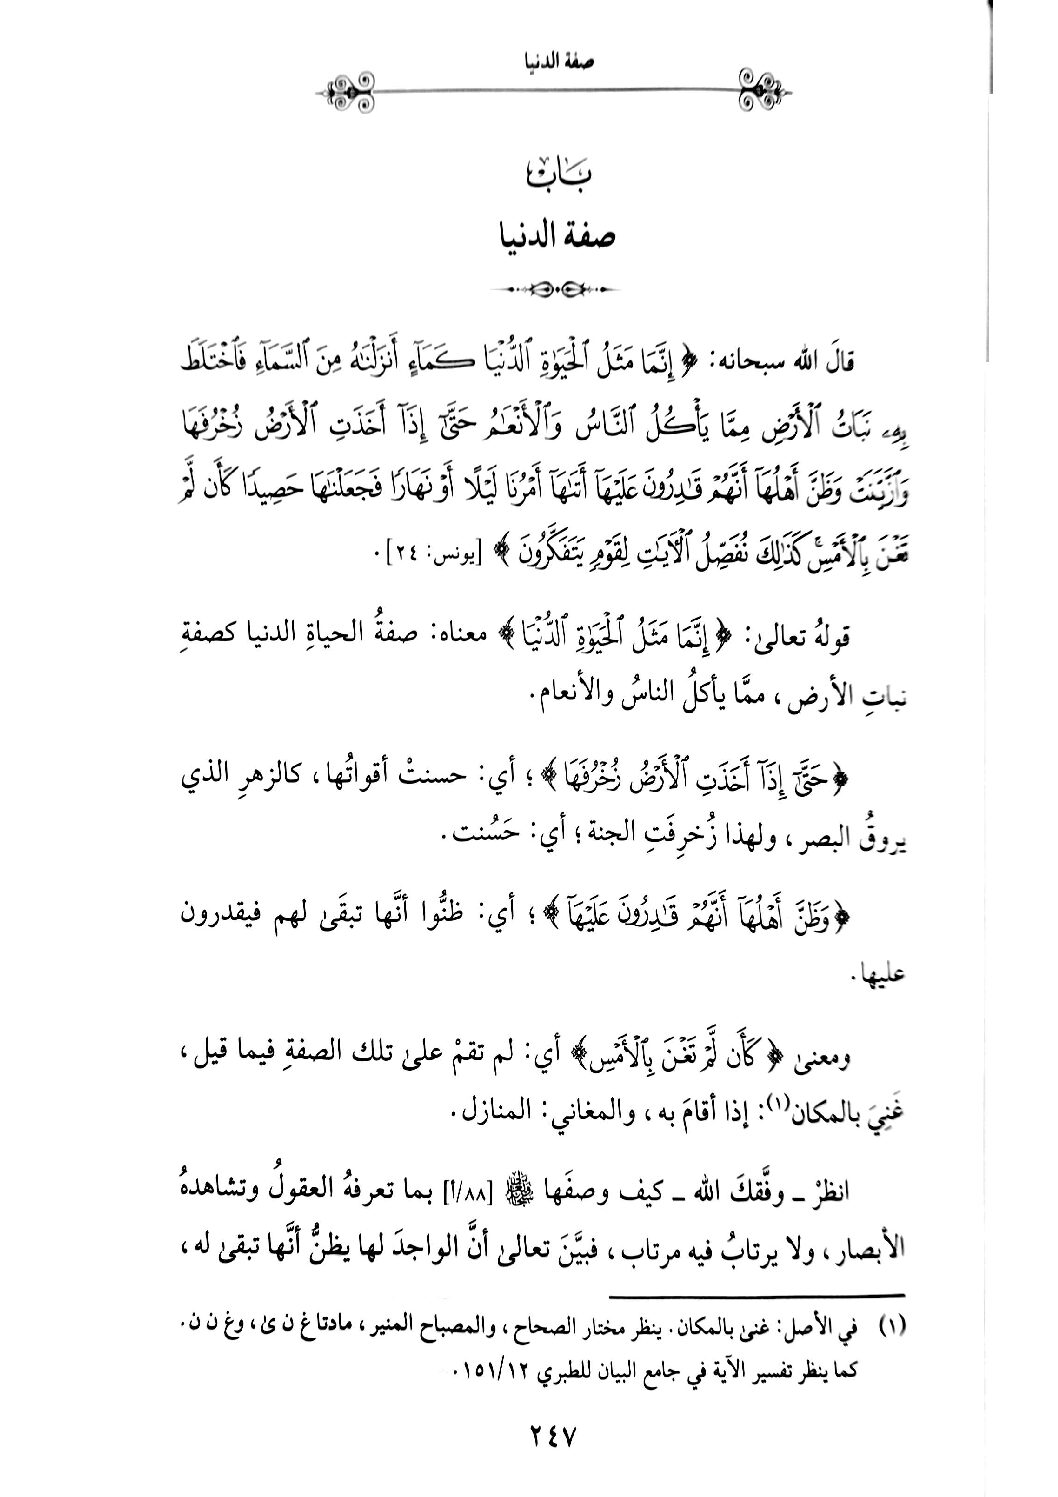 صفة الدنيا
بَاب
صفة الدنيا
قالَ الله سبحانه: ﴿إِنَّمَا مَثَلُ ٱلْحَيَوٰةِ ٱلدُّنْيَا كَمَآءٍ أَنزَلْنَٰهُ مِنَ ٱلسَّمَآءِ فَٱخْتَلَطَ
بِهِۦ نَبَاتُ ٱلْأَرْضِ مِمَّا يَأْكُلُ ٱلنَّاسُ وَٱلْأَنْعَٰمُ حَتَّىٰٓ إِذَآ أَخَذَتِ ٱلْأَرْضُ زُخْرُفَهَا
وَٱزَّيَّنَتْ وَظَنَّ أَهْلُهَآ أَنَّهُمْ قَٰدِرُونَ عَلَيْهَآ أَتَىٰهَآ أَمْرُنَا لَيْلًا أَوْ نَهَارًا فَجَعَلْنَٰهَا حَصِيدًا كَأَن لَّمْ
تَغْنَ بِٱلْأَمْسِ ۚ كَذَٰلِكَ نُفَصِّلُ ٱلْءَايَٰتِ لِقَوْمٍ يَتَفَكَّرُونَ﴾ [يونس: ٢٤].
قولهُ تعالىٰ: ﴿إِنَّمَا مَثَلُ ٱلْحَيَوٰةِ ٱلدُّنْيَا﴾ معناه: صفةُ الحياةِ الدنيا كصفةِ
نباتِ الأرض، ممَّا يأكلُ الناسُ والأنعام.
﴿حَتَّىٰٓ إِذَآ أَخَذَتِ ٱلْأَرْضُ زُخْرُفَهَا﴾؛ أي: حسنتْ أقواتُها، كالزهرِ الذي
يروقُ البصر، ولهذا زُخرِفَتِ الجنة؛ أي: حَسُنت.
﴿وَظَنَّ أَهْلُهَآ أَنَّهُمْ قَٰدِرُونَ عَلَيْهَآ﴾؛ أي: ظنُّوا أنَّها تبقَىٰ لهم فيقدرون
عليها.
ومعنىٰ ﴿كَأَن لَّمْ تَغْنَ بِٱلْأَمْسِ﴾ أي: لم تقمْ علىٰ تلك الصفةِ فيما قيل،
غَنِيَ بالمكان(١): إذا أقامَ به، والمغاني: المنازل.
انظرْ ـ وفَّقكَ الله ـ كيف وصفَها ﷺ [٨٨/أ] بما تعرفهُ العقولُ وتشاهدهُ
الأبصار، ولا يرتابُ فيه مرتاب، فبيَّنَ تعالىٰ أنَّ الواجدَ لها يظنُّ أنَّها تبقىٰ له،
(١) في الأصل: غنىٰ بالمكان. ينظر مختار الصحاح، والمصباح المنير، مادتا غ ن ىٰ، وغ ن ن.
كما ينظر تفسير الآية في جامع البيان للطبري ١٥١/١٢.
٢٤٧